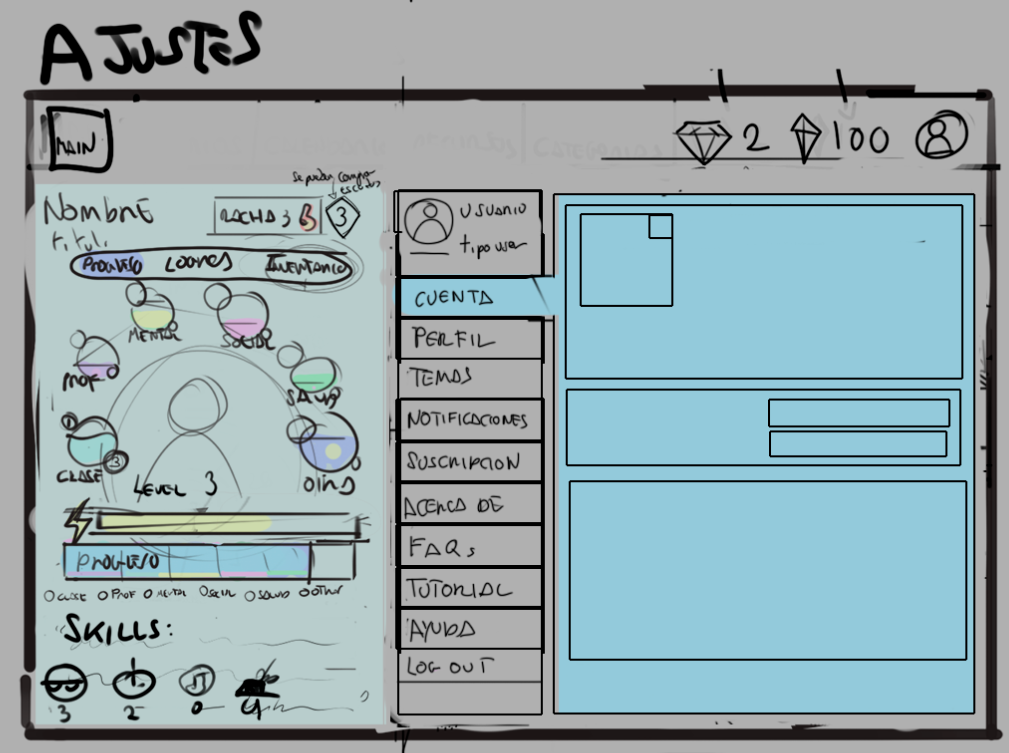 AJUSTES
MAIN
2
100
Se pueden comprar escudos
Nombre
RACHA 3
3
titulo
PROGRESO LOGROS INVENTARIO
MENTAL
SOCIAL
PROF
SALUD
CLASE
3
OTRO
LEVEL 3
PROGRESO
CLASE PROF MENTAL SOCIAL SALUD OTHER
SKILLS:
3 2 0 4
USUARIO
tipo user
CUENTA
PERFIL
TEMAS
NOTIFICACIONES
SUSCRIPCION
ACERCA DE
FAQs
TUTORIAL
AYUDA
LOG OUT
CATEGORIAS